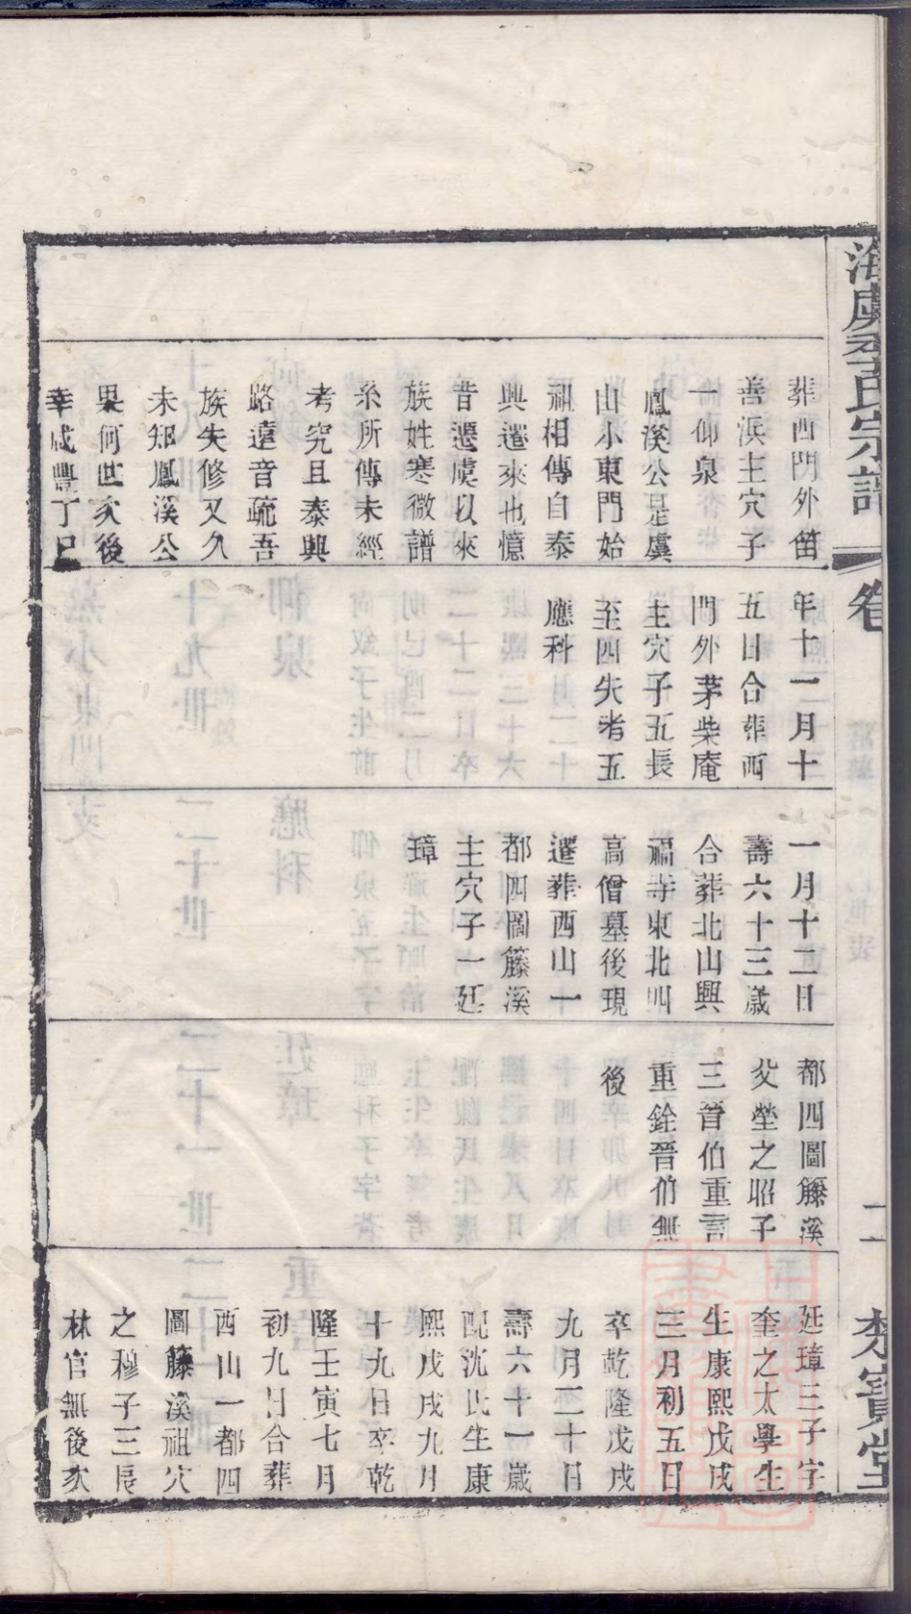 海虞李氏宗譜
卷
二
李寶堂
葬西門外笛
善浜主穴子
一仰泉
鳳溪公是虞
山小東門始
祖相傳自泰
興遷來也憶
昔遷虞以來
族姓寒微譜
系所傳未經
考究且泰興
路遠音疏吾
族失修又久
未知鳳溪公
果何世次後
幸咸豐丁巳
年十二月十
五日合葬西
門外茅柴庵
主穴子五長
至四失考五
應科
一月十二日
壽六十三歲
合葬北山興
福寺東北四
高僧墓後現
遷葬西山一
都四圖籐溪
主穴子一廷
璋
都四圖籐溪
父塋之昭子
三晉伯重言
重銓晉伯無
後
廷璋三子字
奎之太學生
生康熙戊戌
三月初五日
卒乾隆戊戌
九月二十日
壽六十一歲
配沈氏生康
熙戊戌九月
十九日卒乾
隆壬寅七月
初九日合葬
西山一都四
圖籐溪祖穴
之穆子三長
林官無後次